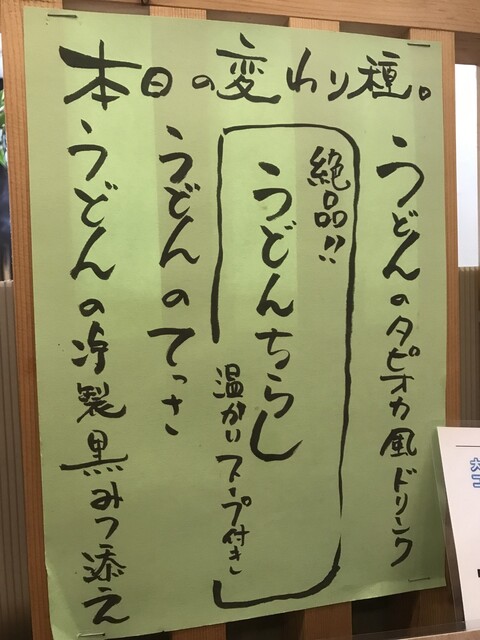 本日の変わり種。
うどんのタピオカ風ドリンク
絶品!!
うどんちらし
温かいスープ付き
うどんのてっさ
うどんの冷製黒みつ添え